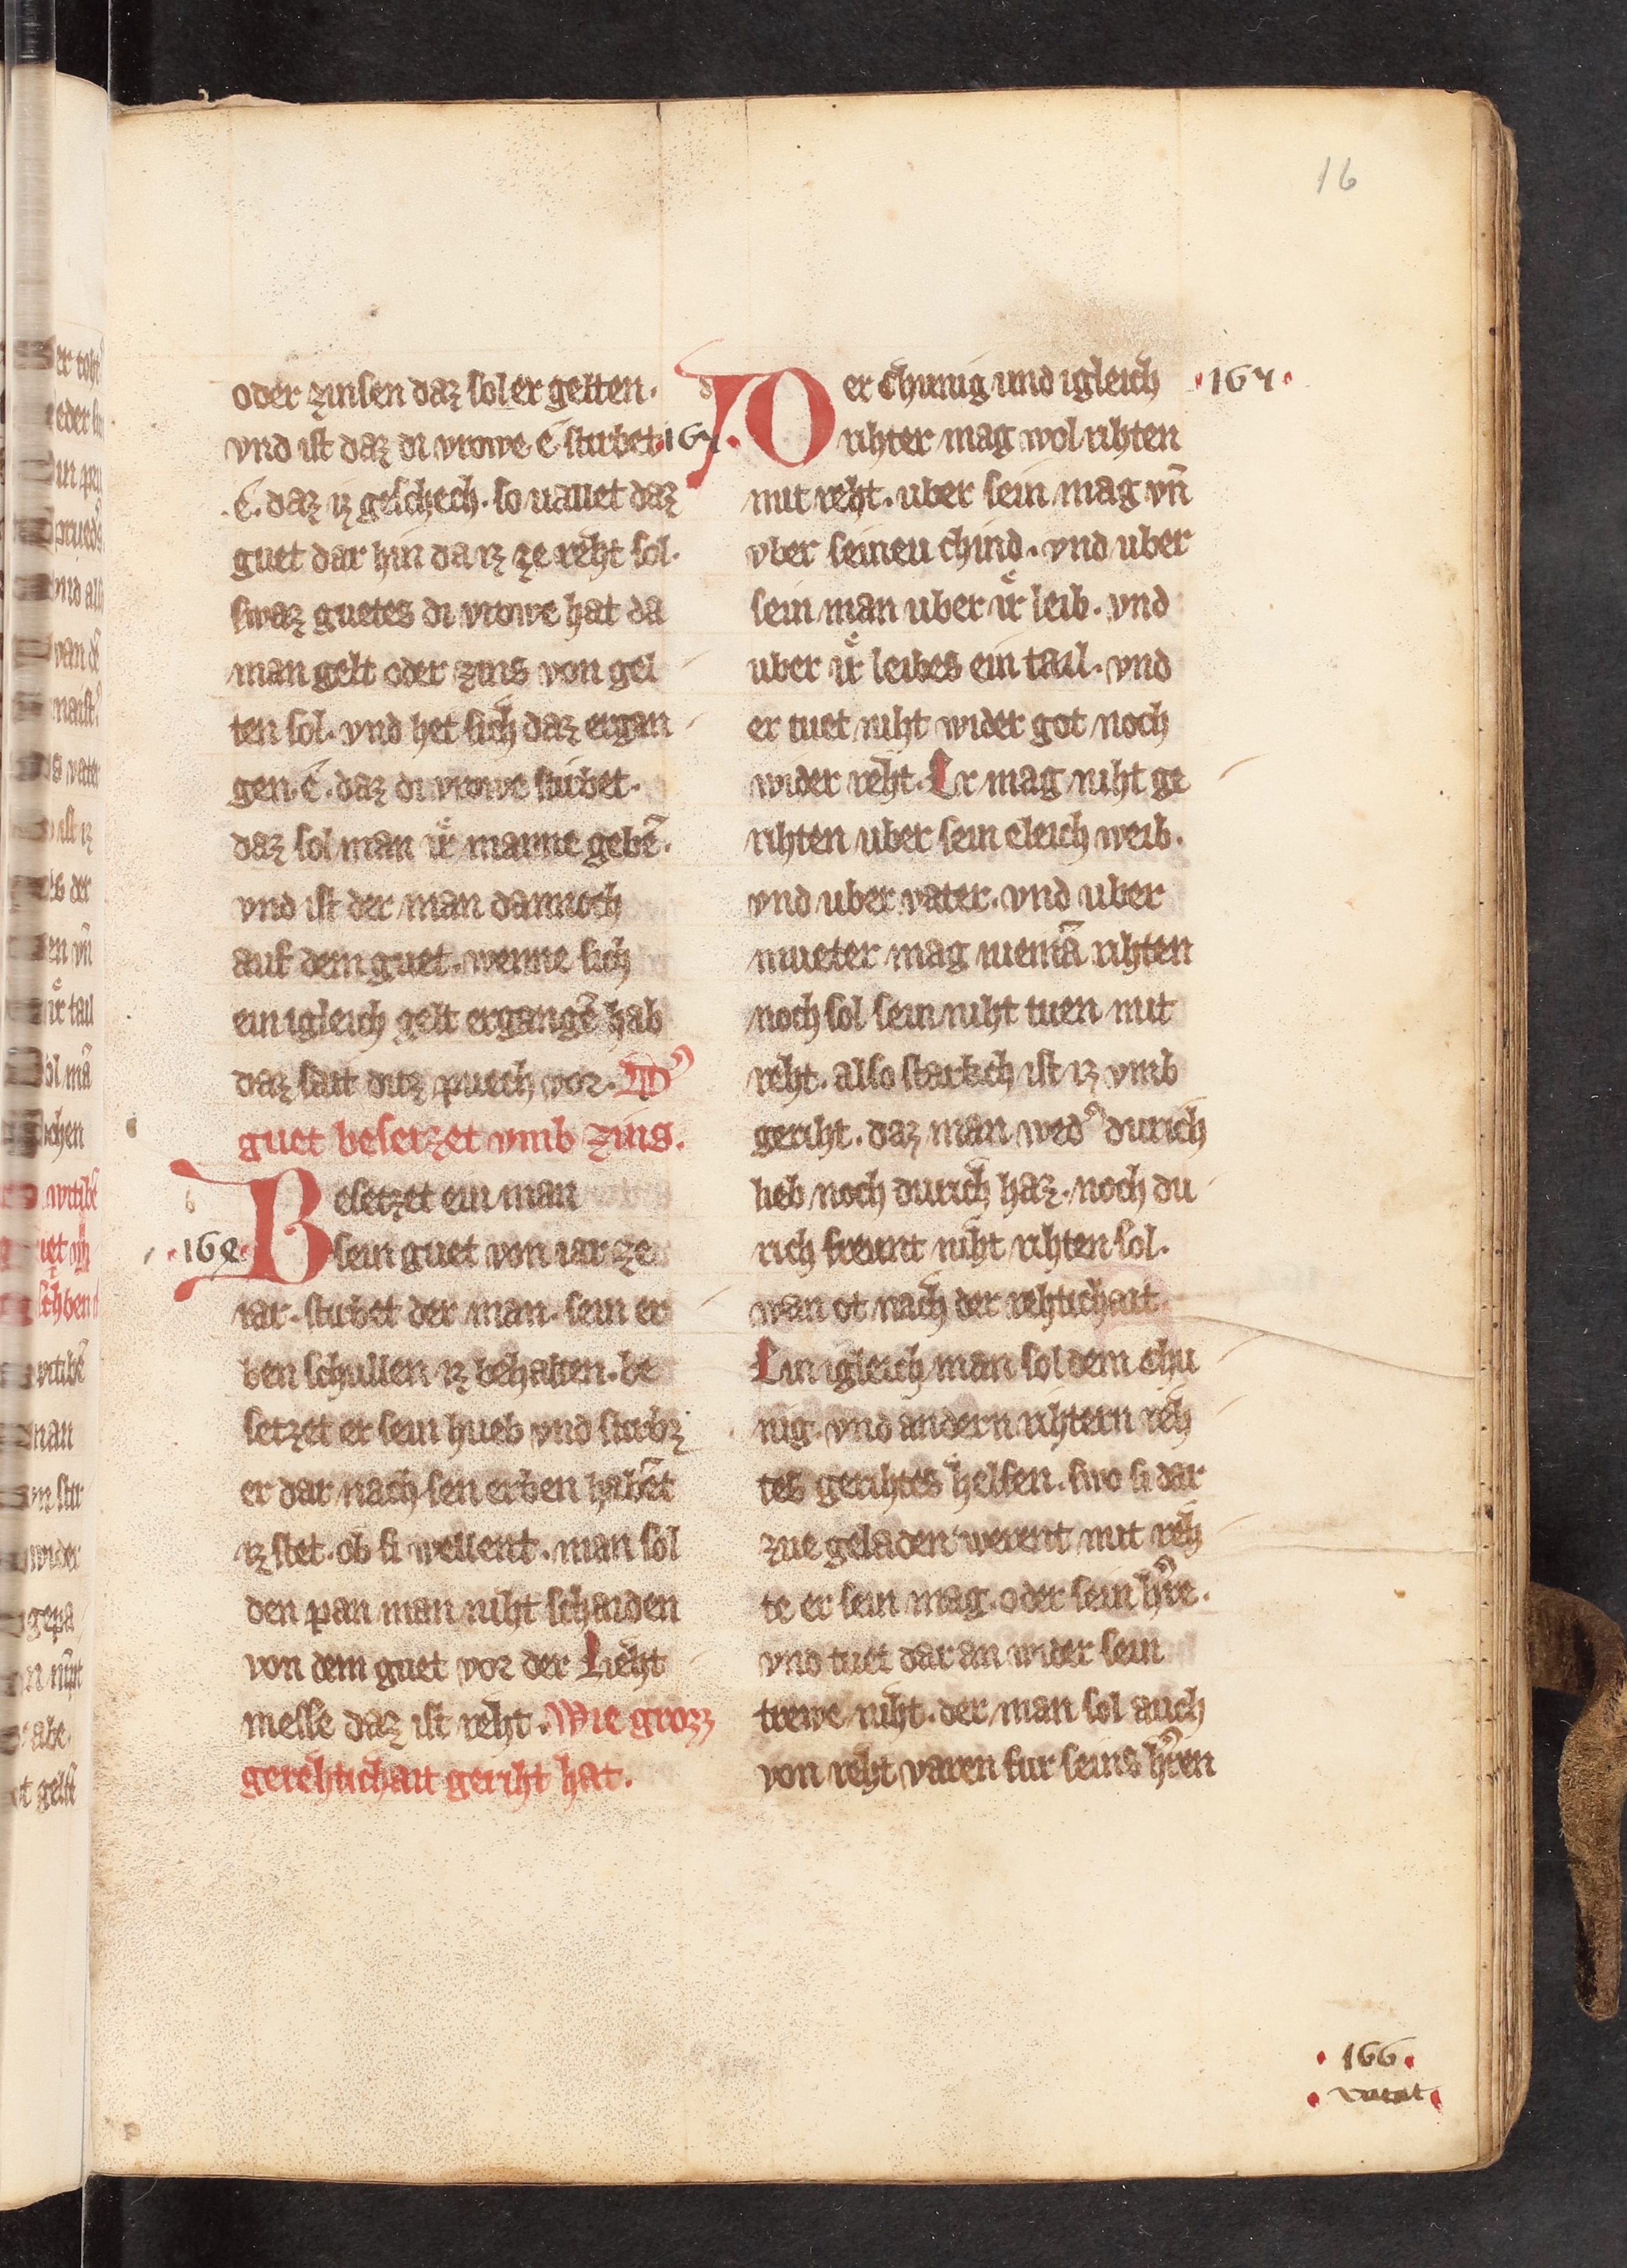 16
oder zinsen daz sol er gelten.
vnd ist daz di vrowe e stirbet
.E. daz iz geschech. so uallet daz
guet dar hin da iz ze reht sol.
swaz guetes di vrowe hat da
man gelt oder zins von gel
ten sol. vnd het sich daz ergan
gen. e. daz di vrowe stirbet.
daz sol man ir manne gebē.
vnd ist der man dannoch
auf dem guet. wenne sich
ein igleich gelt ergangē hab
daz sait ditz puech vor. D᾿
guet besetzet vmb zins.
Besetzet ein man
sein guet von iar ze
iar. stirbet der man. sein er
ben schullen iz behalten. be
setzet er sein hueb vnd stirbz
er dar nach sen erben habēt
iz stet. ob si wellent. man sol
den pan man niht schaiden
von dem guet vor der Lieht
messe daz ist reht. Wie grozz
gerehtichait geriht hat.
Der Chunig und igleich
rihter mag wol rihten
mit reht. uber sein mag vn̄
vber seineu chind. vnd uber
sein man uber iͤr leib. vnd
uber iͤr leibes ein tail. vnd
er tuet niht wider got noch
wider reht. Er mag niht ge
rihten uber sein eleich weib.
vnd uber vater. vnd uber
mueter mag niemā rihten
noch sol sein niht tuen mit
reht. also starkch ist iz vmb
geriht. daz man wed᾿ durich
lieb noch durich haz. noch du
rich freunt niht rihten sol.
wan ot nach der rehtichait
Ein igleich man sol dem chu
nig. vnd andern rihtern reh
tes gerihtes helfen. swo si dar
zue geladen werent mit reh
te er sein mag. oder sein h᾿re.
vnd tuet dar an wider sein
trewe niht. der man sol auch
von reht varen fur seins h᾿ren
.166.